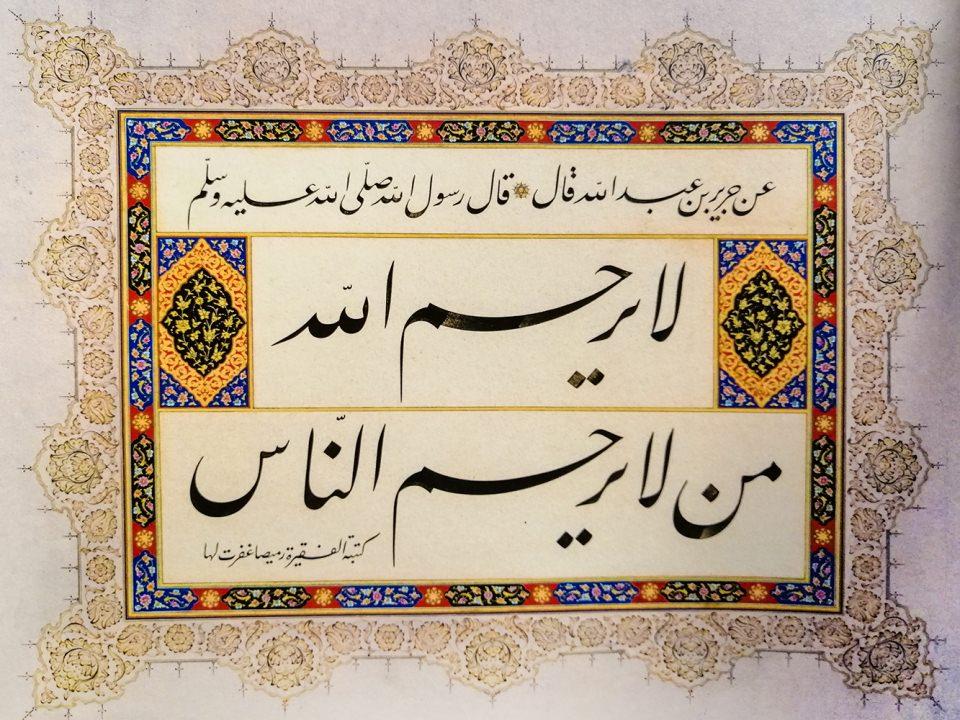 عن جرير بن عبد الله قال قال رسول الله صلّى الله عليه وسلّم
لا يرحم الله
من لا يرحم النّاس
كتبته الفقيرة رميصا غفرت لها